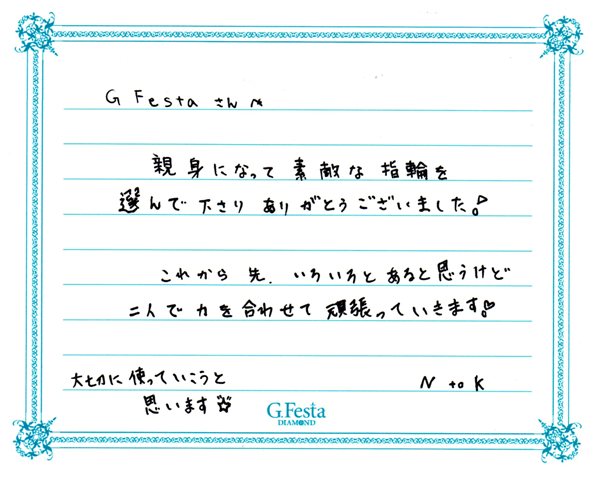 G Festa さんへ
親身になって素敵な指輪を
選んで下さり ありがとうございました♪
これから先、いろいろとあると思うけど
二人で力を合わせて頑張っていきます♡
大切に使っていこうと
思います☆
N to K
G.Festa
DIAMOND